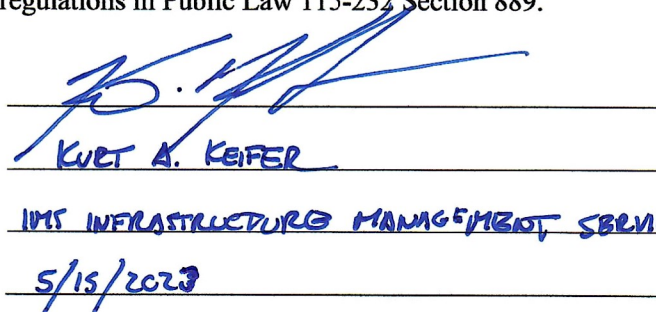 regulations in Public Law 115-232 Section 889.
KURT A. KEIFER
IMS INFRASTRUCTURE MANAGEMENT SERVI
5/15/2023